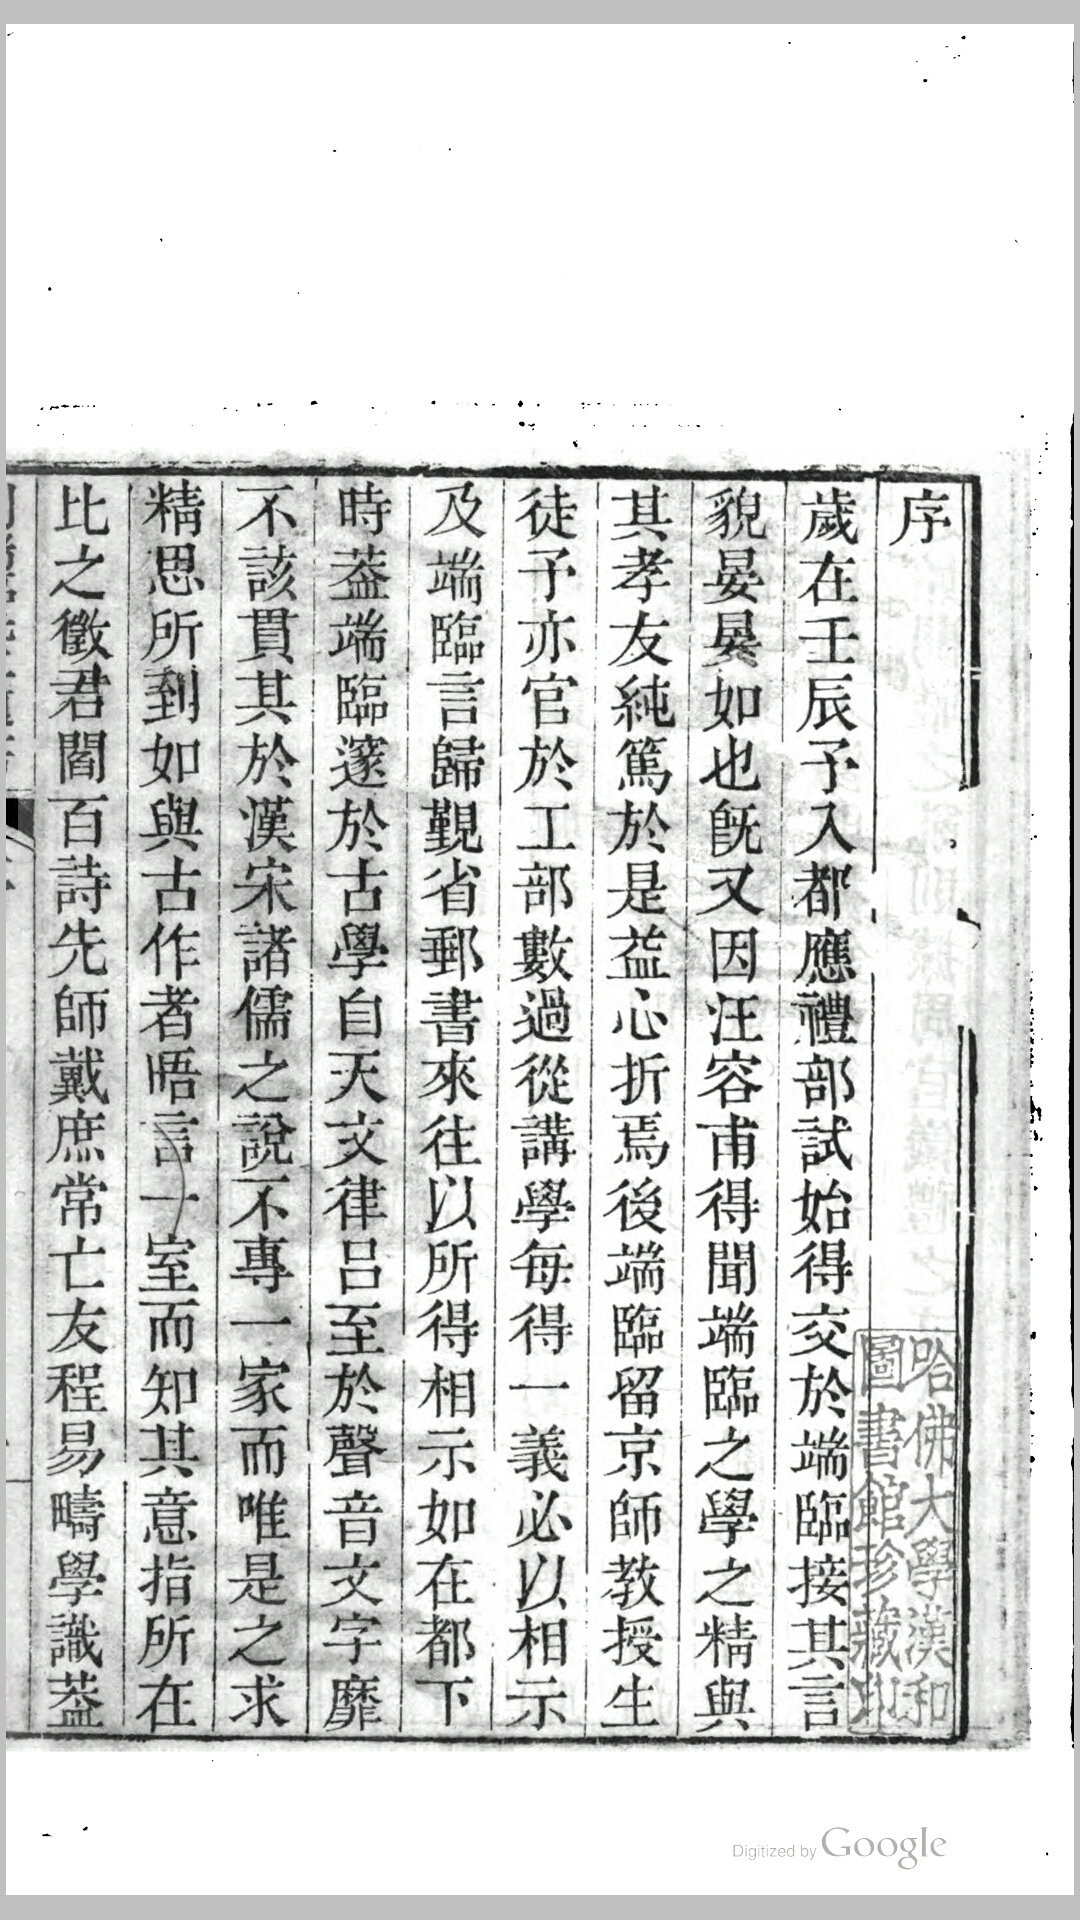 序
歲在壬辰予入都應禮部試始得交於端臨接其言
貌晏晏如也旣又因汪容甫得聞端臨之學之精與
其孝友純篤於是益心折焉後端臨留京師教授生
徒予亦官於工部數過從講學每得一義必以相示
及端臨言歸覲省郵書來往以所得相示如在都下
時葢端臨邃於古學自天文律呂至於聲音文字靡
不該貫其於漢宋諸儒之說不專一家而唯是之求
精思所到如與古作者晤言一室而知其意指所在
比之徵君閻百詩先師戴庶常亡友程易疇學識葢
哈佛大學漢和
圖書館珍藏印
Digitized by Google